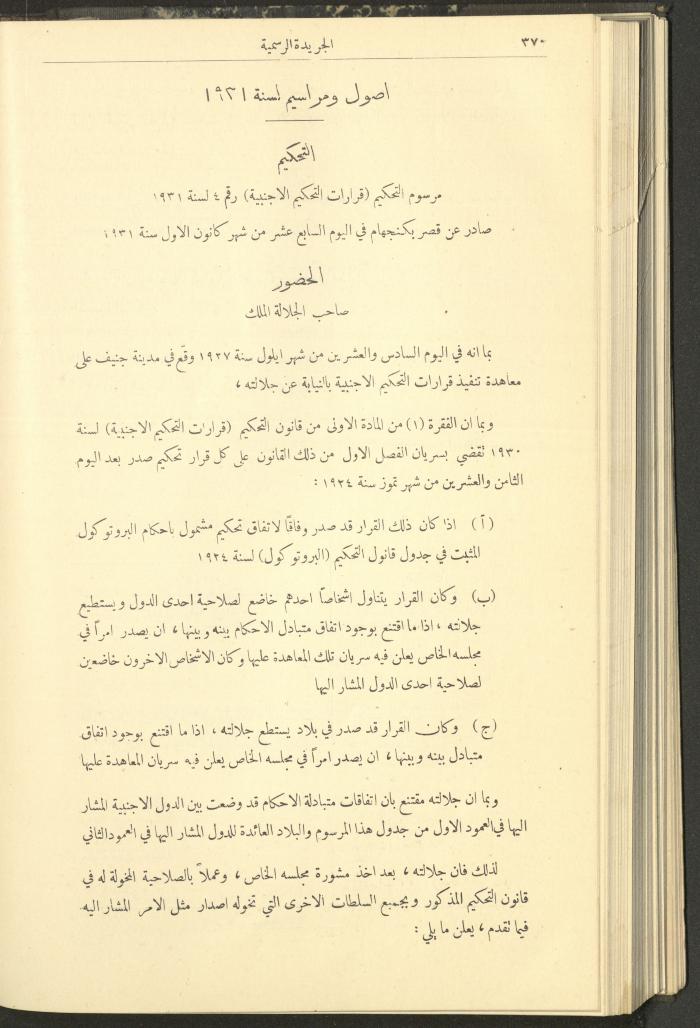 ٣٧٠
الجريدة الرسمية
اصول ومراسيم لسنة ١٩٣١
التحكيم
مرسوم التحكيم (قرارات التحكيم الاجنبية) رقم ٤ لسنة ١٩٣١
صادر عن قصر بكنجهام في اليوم السابع عشر من شهر كانون الاول سنة ١٩٣١
الحضور
صاحب الجلالة الملك
بما انه في اليوم السادس والعشرين من شهر ايلول سنة ١٩٢٧ وقّع في مدينة جنيف على
معاهدة تنفيذ قرارات التحكيم الاجنبية بالنيابة عن جلالته ،
وبما ان الفقرة (١) من المادة الاولى من قانون التحكيم (قرارات التحكيم الاجنبية) لسنة
١٩٣٠ تقضي بسريان الفصل الاول من ذلك القانون على كل قرار تحكيم صدر بعد اليوم
الثامن والعشرين من شهر تموز سنة ١٩٢٤ :
(آ) اذا كان ذلك القرار قد صدر وفاقًا لاتفاق تحكيم مشمول باحكام البروتوكول
المثبت في جدول قانول التحكيم (البروتوكول) لسنة ١٩٢٤
(ب) وكان القرار يتناول اشخاصاً احدهم خاضع لصلاحية احدى الدول ويستطيع
جلالته ، اذا ما اقتنع بوجود اتفاق متبادل الاحكام بينه وبينها ، ان يصدر امراً في
مجلسه الخاص يعلن فيه سريان تلك المعاهدة عليها وكان الاشخاص الاخرون خاضعين
لصلاحية احدى الدول المشار اليها
(ج) وكان القرار قد صدر في بلاد يستطع جلالته ، اذا ما اقتنع بوجود اتفاق
متبادل بينه وبينها ، ان يصدر امراً في مجلسه الخاص يعلن فيه سريان المعاهدة عليها
وبما ان جلالته مقتنع بان اتفاقات متبادلة الاحكام قد وضعت بين الدول الاجنبية المشار
اليها في العمود الاول من جدول هذا المرسوم والبلاد العائدة للدول المشار اليها في العمود الثاني
لذلك فان جلالته ، بعد اخذ مشورة مجلسه الخاص ، وعملاً بالصلاحية المخولة له في
قانون التحكيم المذكور وبجميع السلطات الاخرى التي تخوله اصدار مثل الامر المشار اليه
فيما تقدم ، يعلن ما يلي :